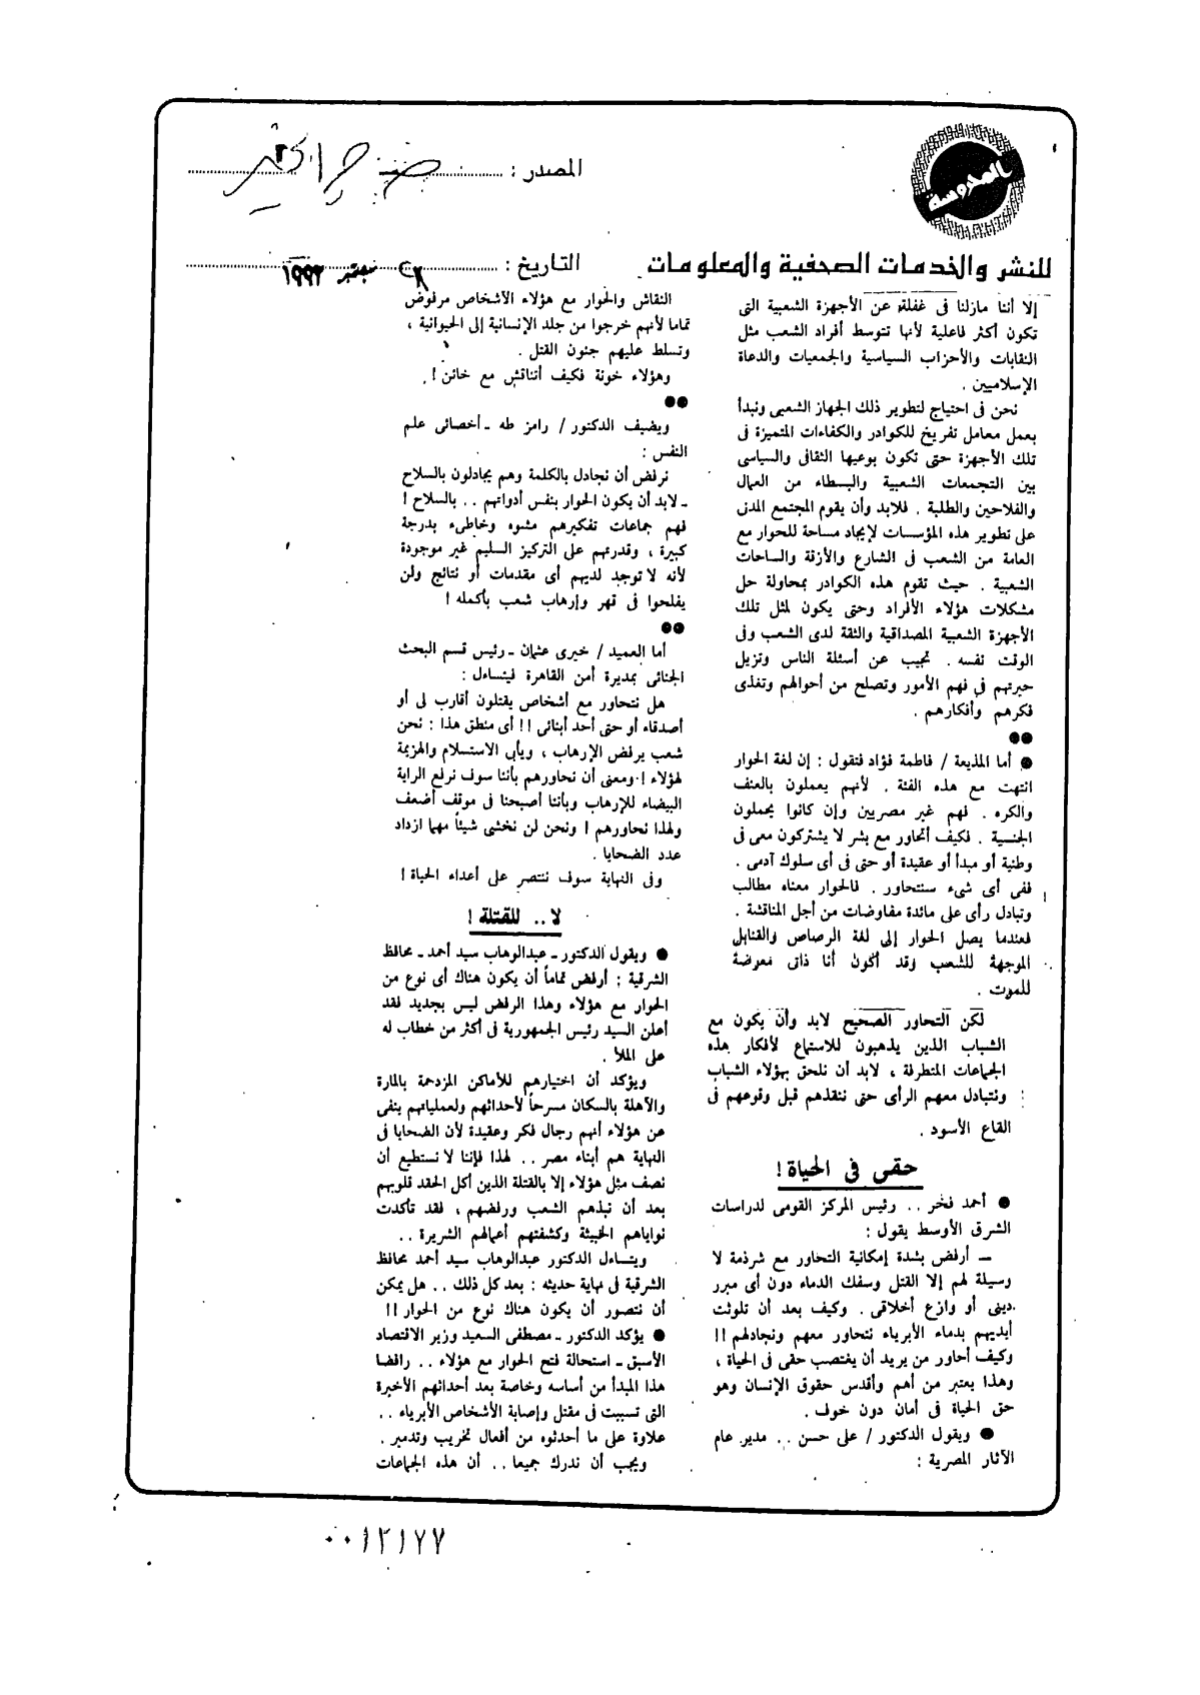 المحروسة
للنشر والخدمات الصحفية والمعلومات
المصدر :
التاريخ : ٢٨ سبتمبر ١٩٩٣
إلا أننا مازلنا فى غفلة عن الأجهزة الشعبية التى
تكون أكثر فاعلية لأنها تتوسط أفراد الشعب مثل
النقابات والأحزاب السياسية والجمعيات والدعاة
الإسلاميين .
نحن فى احتياج لتطوير ذلك الجهاز الشعبى ونبدأ
بعمل معامل تفريخ للكوادر والكفاءات المتميزة فى
تلك الأجهزة حتى تكون بوعيها الثقافى والسياسى
بين التجمعات الشعبية والبسطاء من العمال
والفلاحين والطلبة . فلابد وأن يقوم المجتمع المدنى
على تطوير هذه المؤسسات لإيجاد مساحة للحوار مع
العامة من الشعب فى الشارع والأزقة والساحات
الشعبية . حيث تقوم هذه الكوادر بمحاولة حل
مشكلات هؤلاء الأفراد وحتى يكون لمثل تلك
الأجهزة الشعبية المصداقية والثقة لدى الشعب وفى
الوقت نفسه . تجيب عن أسئلة الناس وتزيل
حيرتهم فى فهم الأمور وتصلح من أحوالهم وتغذى
فكرهم وأفكارهم .
●●
● أما المذيعة / فاطمة فؤاد فتقول : إن لغة الحوار
انتهت مع هذه الفئة . لأنهم يعملون بالعنف
والكره . فهم غير مصريين وإن كانوا يحملون
الجنسية . فكيف أتحاور مع بشر لا يشتركون معى فى
وطنية أو مبدأ أو عقيدة أو حتى فى أى سلوك آدمى .
ففى أى شىء سنتحاور . فالحوار معناه مطالب
وتبادل رأى على مائدة مفاوضات من أجل المناقشة .
فعندما يصل الحوار إلى لغة الرصاص والقنابل
الموجهة للشعب وقد أكون أنا ذاتى معرضة
للموت .
لكن التحاور الصحيح لابد وأن يكون مع
الشباب الذين يذهبون للاستماع لأفكار هذه
الجماعات المتطرفة ، لابد أن نلحق بهؤلاء الشباب
ونتبادل معهم الرأى حتى ننقذهم قبل وقوعهم فى
القاع الأسود .
حقى فى الحياة !
● أحمد فخر .. رئيس المركز القومى لدراسات
الشرق الأوسط يقول :
ـ أرفض بشدة إمكانية التحاور مع شرذمة لا
وسيلة لهم إلا القتل وسفك الدماء دون أى مبرر
دينى أو وازع أخلاقى . وكيف بعد أن تلوثت
أيديهم بدماء الأبرياء نتحاور معهم ونجادلهم !!
وكيف أحاور من يريد أن يغتصب حقى فى الحياة ،
وهذا يعتبر من أهم وأقدس حقوق الإنسان وهو
حق الحياة فى أمان دون خوف .
● ويقول الدكتور / على حسن .. مدير عام
الآثار المصرية :
النقاش والحوار مع هؤلاء الأشخاص مرفوض
تماما لأنهم خرجوا من جلد الإنسانية إلى الحيوانية ،
وتسلط عليهم جنون القتل .
وهؤلاء خونة فكيف أتناقش مع خائن !
●●
ويضيف الدكتور / رامز طه ـ أخصائى علم
النفس :
نرفض أن نجادل بالكلمة وهم يجادلون بالسلاح
ـ لابد أن يكون الحوار بنفس أدواتهم .. بالسلاح !
فهم جماعات تفكيرهم مشوه وخاطىء بدرجة
كبيرة ، وقدرتهم على التركيز السليم غير موجودة
لأنه لا توجد لديهم أى مقدمات أو نتائج ولن
يفلحوا فى قهر وإرهاب شعب بأكمله !
●●
أما العميد / خيرى عثمان ـ رئيس قسم البحث
الجنائى بمديرة أمن القاهرة فيتساءل :
هل نتحاور مع أشخاص يقتلون أقارب لى أو
أصدقاء أو حتى أحد أبنائى !! أى منطق هذا : نحن
شعب يرفض الإرهاب ، ويأبى الاستسلام والهزيمة
لهؤلاء ! ومعنى أن نحاورهم بأننا سوف نرفع الراية
البيضاء للإرهاب وبأننا أصبحنا فى موقف أضعف
ولهذا نحاورهم ! ونحن لن نخشى شيئاً مهما ازداد
عدد الضحايا .
وفى النهاية سوف ننتصر على أعداء الحياة !
لا .. للقتلة !
● ويقول الدكتور ـ عبدالوهاب سيد أحمد ـ محافظ
الشرقية : أرفض تماماً أن يكون هناك أى نوع من
الحوار مع هؤلاء وهذا الرفض ليس بجديد لقد
أعلن السيد رئيس الجمهورية فى أكثر من خطاب له
على الملأ .
ويؤكد أن اختيارهم للأماكن المزدحمة بالمارة
والآهلة بالسكان مسرحاً لأحداثهم ولعملياتهم ينفى
عن هؤلاء أنهم رجال فكر وعقيدة لأن الضحايا فى
النهاية هم أبناء مصر .. لهذا فإننا لا نستطيع أن
نصف مثل هؤلاء إلا بالقتلة الذين أكل الحقد قلوبهم
بعد أن نبذهم الشعب ورفضهم ، فقد تأكدت
نواياهم الخبيثة وكشفتهم أعمالهم الشريرة ..
ويتساءل الدكتور عبدالوهاب سيد أحمد محافظ
الشرقية فى نهاية حديثه : بعد كل ذلك .. هل يمكن
أن نتصور أن يكون هناك نوع من الحوار !!
● يؤكد الدكتور ـ مصطفى السعيد وزير الاقتصاد
الأسبق ـ استحالة فتح الحوار مع هؤلاء .. رافضا
هذا المبدأ من أساسه وخاصة بعد أحداثهم الأخيرة
التى تسببت فى مقتل وإصابة الأشخاص الأبرياء ..
علاوة على ما أحدثوه من أفعال تخريب وتدمير .
ويجب أن ندرك جميعا .. أن هذه الجماعات
٠٠١٢١٧٧